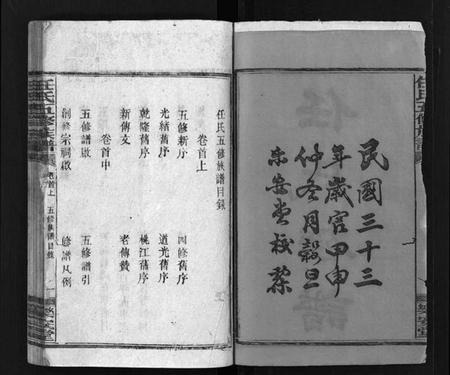 民國三十三
年歲官甲申
仲冬月穀旦
樂安堂校梓
任氏五修族譜目錄
卷首上
五修新序 四修舊序
光緒舊序 道光舊序
乾隆舊序 桃江舊序
新傳文 老傳贊
卷首中
五修譜啟 五修譜引
創修宗祠啟 修譜凡例
任氏五修族譜
卷首上 五修族譜目錄
樂安堂
任氏五修族譜
樂安堂